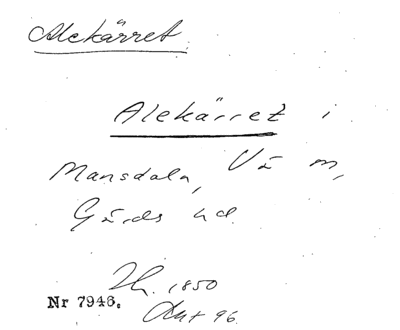 Alekärret
Alekärret i
Mansdala, Vä m,
Gärds hd.
1850
Nr 7946. Akt 96.